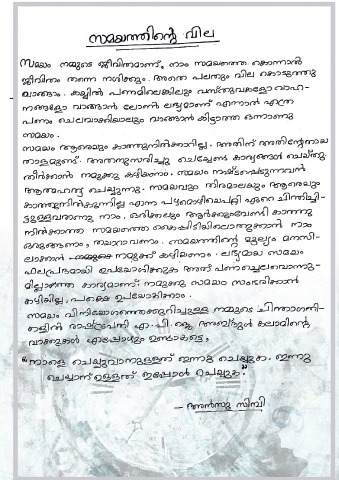 സമയത്തിന്റെ വില
സമയം നമ്മുടെ ജീവിതമാണ്. നാം സമയത്തെ കൊന്നാൽ
ജീവിതം തന്നെ നശിക്കും. അതെ പലതും വില കൊടുത്തു
വാങ്ങാം. കയ്യിൽ പണമില്ലെങ്കിലും വസ്തുവകളോ വാഹ-
നങ്ങളോ വാങ്ങാൻ ലോൺ ലഭ്യമാണ് എന്നാൽ എത്ര
പണം ചെലവാക്കിയാലും വാങ്ങാൻ കിട്ടാത്ത ഒന്നാണു
സമയം.
സമയം ആരെയും കാത്തുനിൽക്കാറില്ല. അതിന് അതിന്റേതായ
താളമുണ്ട്. അതനുസരിച്ചു ചെയ്യേണ്ട കാര്യങ്ങൾ ചെയ്തു
തീർക്കാൻ നമുക്കു കഴിയണം. സമയം നഷ്ടപ്പെടുന്നവൻ
ആത്മഹത്യ ചെയ്യുന്നു. സമയവും തിരമാലകളും ആരെയും
കാത്തുനിൽക്കുന്നില്ല എന്ന പഴമൊഴിയെപ്പറ്റി ഏറെ ചിന്തിച്ചി-
ട്ടുള്ളവരാണു നാം. ഒരിക്കലും ആർക്കുംവേണ്ടി കാത്തു
നിൽക്കാത്ത സമയത്തെ കൈപ്പിടിയിലൊതുക്കാൻ നാം
ഒരുങ്ങണം, തയാറാവണം. സമയത്തിന്റെ മൂല്യം മനസി-
ലാക്കാൻ നമുക്ക് കഴിയണം. ലഭ്യമായ സമയം
ഫലപ്രദമായി ഉപയോഗിക്കുക അത് പണച്ചെലവൊന്നു-
മില്ലാത്ത കാര്യമാണ്. നമുക്കു സമയം സംഭരിക്കാൻ
കഴിയില്ല, പക്ഷെ ഉപയോഗിക്കാം.
സമയം വിനിയോഗത്തെക്കുറിച്ചുള്ള നമ്മുടെ ചിന്താഗതി-
കളിൽ രാഷ്ട്രപതി എ.പി.ജെ. അബ്ദുൾ കലാമിന്റെ
വാക്കുകൾ എപ്പോഴും ഉണ്ടാകട്ടെ,
“നാളെ ചെയ്യുവാനുള്ളത് ഇന്നു ചെയ്യുക. ഇന്നു
ചെയ്യാനുള്ളത് ഇപ്പോൾ ചെയ്യുക.”
- അൽന്നു സിബി